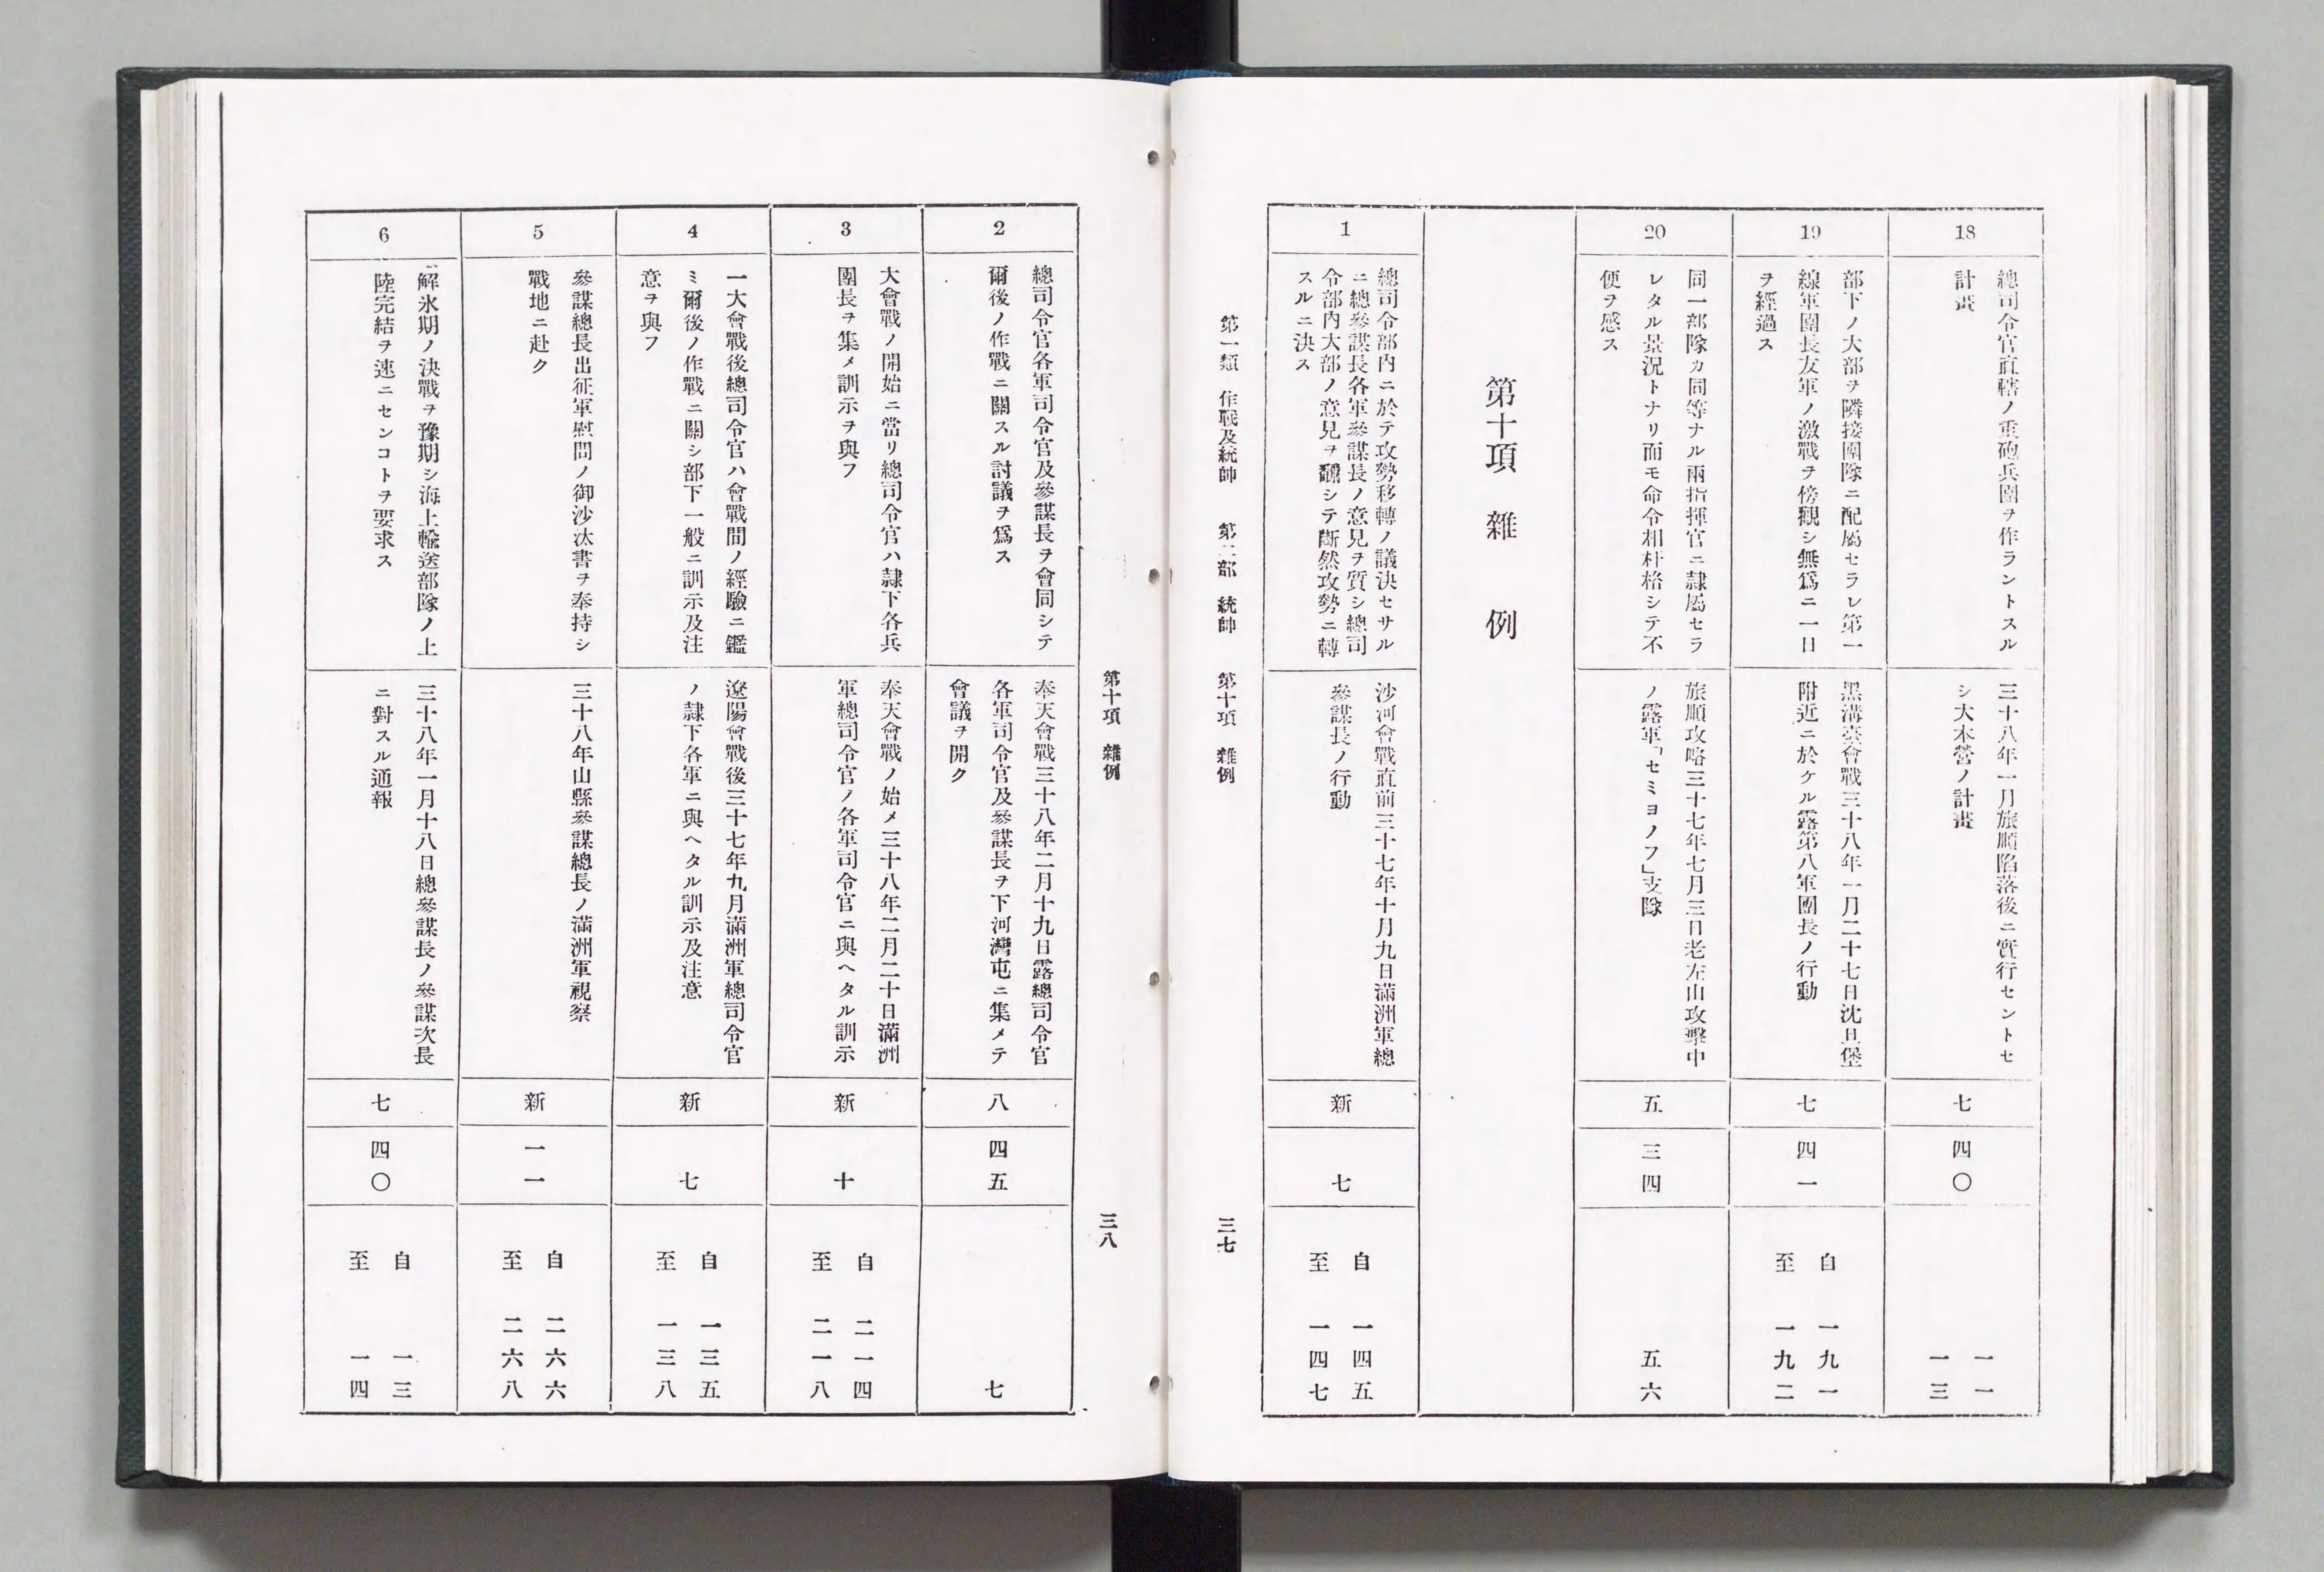 18
總司令官直轄ノ重砲兵團ヲ作ラントスル
計畫
三十八年一月旅順陷落後ニ實行セントセ
シ大本營ノ計畫
七
四〇
一一
一三
19
部下ノ大部ヲ隣接團隊ニ配屬セラレ第一
線軍團長友軍ノ激戰ヲ傍觀シ無爲ニ一日
ヲ經過ス
黑溝臺會戰三十八年一月二十七日沈旦堡
附近ニ於ケル露第八軍團長ノ行動
七
四一
自 一九一
至 一九二
20
同一部隊カ同等ナル兩指揮官ニ隷屬セラ
レタル景況トナリ而モ命令相杆格シテ不
便ヲ感ス
旅順攻略三十七年七月三日老左山攻擊中
ノ露軍「セミヨノフ」支隊
五
三四
五六
第十項 雜例
1
總司令部内ニ於テ攻勢移轉ノ議決セサル
ニ總參謀長各軍參謀長ノ意見ヲ質シ總司
令部内大部ノ意見ヲ飜シテ斷然攻勢ニ轉
スルニ決ス
沙河會戰直前三十七年十月九日滿洲軍總
參謀長ノ行動
新
七
自 一四五
至 一四七
第一類 作戰及統帥 第二部 統帥 第十項 雜例
三七
第十項 雜例
三八
2
總司令官各軍司令官及參謀長ヲ會同シテ
爾後ノ作戰ニ關スル討議ヲ爲ス
奉天會戰三十八年二月十九日露總司令官
各軍司令官及參謀長ヲ下河灣屯ニ集メテ
會議ヲ開ク
八
四五
七
3
大會戰ノ開始ニ當リ總司令官ハ隷下各兵
團長ヲ集メ訓示ヲ與フ
奉天會戰ノ始メ三十八年二月二十日滿洲
軍總司令官ノ各軍司令官ニ與ヘタル訓示
新
十
自 二一四
至 二一八
4
一大會戰後總司令官ハ會戰間ノ經驗ニ鑑
ミ爾後ノ作戰ニ關シ部下一般ニ訓示及注
意ヲ與フ
遼陽會戰後三十七年九月滿洲軍總司令官
ノ隷下各軍ニ與ヘタル訓示及注意
新
七
自 一三五
至 一三八
5
參謀總長出征軍慰問ノ御沙汰書ヲ奉持シ
戰地ニ赴ク
三十八年山縣參謀總長ノ滿洲軍視察
新
一一
自 二六六
至 二六八
6
解氷期ノ決戰ヲ豫期シ海上輸送部隊ノ上
陸完結ヲ速ニセンコトヲ要求ス
三十八年一月十八日總參謀長ノ參謀次長
ニ對スル通報
七
四〇
自 一三
至 一四